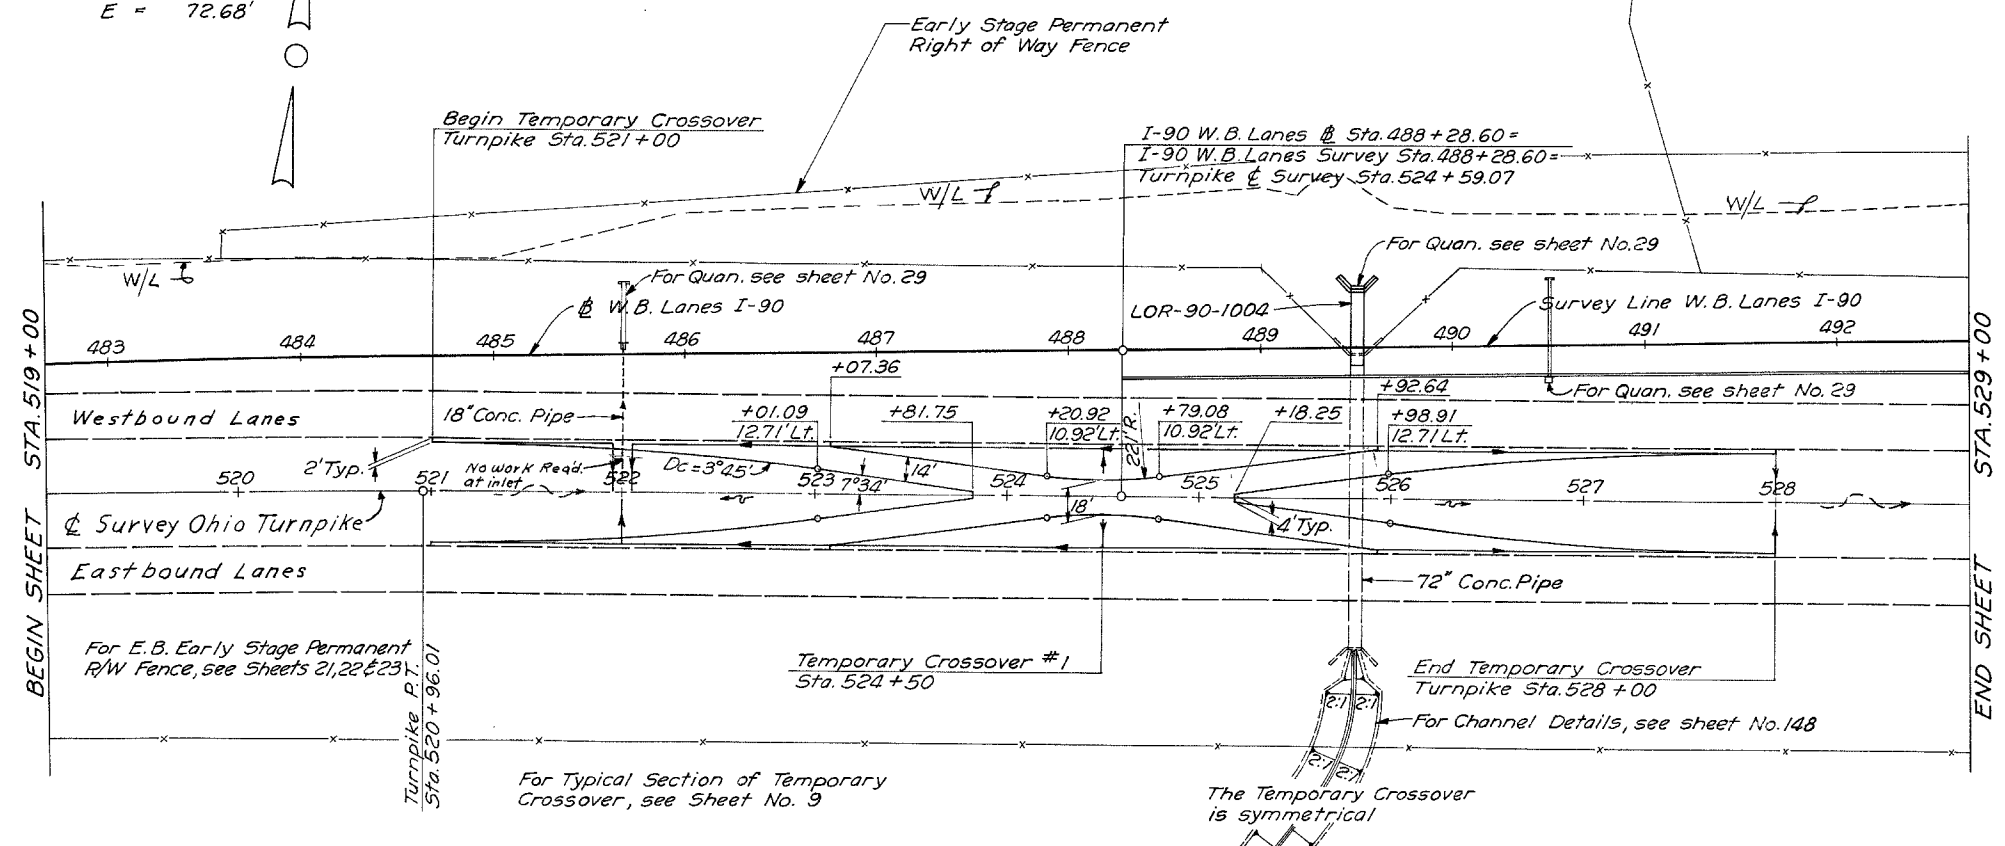 E = 72.68'
Early Stage Permanent
Right of Way Fence
Begin Temporary Crossover
Turnpike Sta. 521 + 00
I-90 W.B. Lanes ⅊ Sta. 488 + 28.60 =
I-90 W.B. Lanes Survey Sta. 488 + 28.60 =
Turnpike ℄ Survey Sta. 524 + 59.07
W/L
W/L
W/L
For Quan. see sheet No. 29
For Quan. see sheet No. 29
W.B. Lanes I-90
LOR-90-1004
Survey Line W.B. Lanes I-90
483 484 485 486 487 488 489 490 491 492
BEGIN SHEET STA. 519 + 00
END SHEET STA. 529 + 00
+07.36
+92.64
For Quan. see sheet No. 29
Westbound Lanes
18" Conc. Pipe
+01.09
12.71' Lt.
+81.75
+20.92
10.92' Lt.
221' R.
+79.08
10.92' Lt.
+18.25
+98.91
12.71 Lt.
2' Typ.
No work Req'd.
at inlet
Dc = 3°45'
7°34'
14'
18'
4' Typ.
520 521 522 523 524 525 526 527 528
℄ Survey Ohio Turnpike
Eastbound Lanes
72" Conc. Pipe
For E.B. Early Stage Permanent
R/W Fence, see Sheets 21, 22 & 23
Turnpike P.T.
Sta. 520 + 96.01
Temporary Crossover #1
Sta. 524 + 50
End Temporary Crossover
Turnpike Sta. 528 + 00
2:1 2:1
For Channel Details, see sheet No. 148
2:1 2:1
For Typical Section of Temporary
Crossover, see Sheet No. 9
The Temporary Crossover
is symmetrical